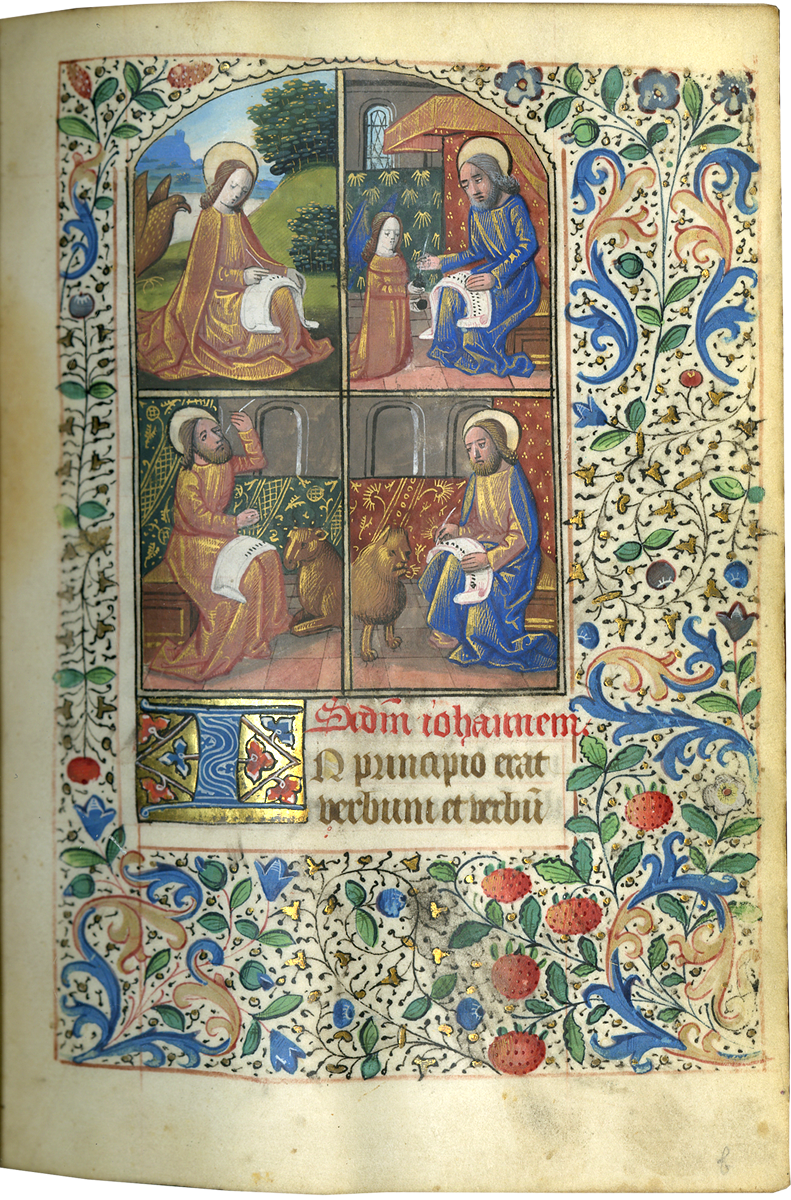 Scdm̄ iohannem.
IN principio erat
verbum et verbū